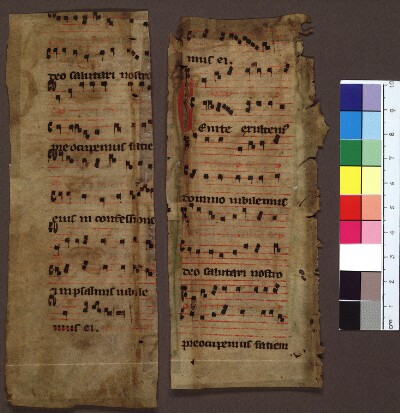 deo salutari nostro
preocupemus facie
eius in confessione
In psalmis iubile
mus ei.
mus ei.
Enite exultem
domino iubilemus
deo salutari nostro
preocupemus faciem